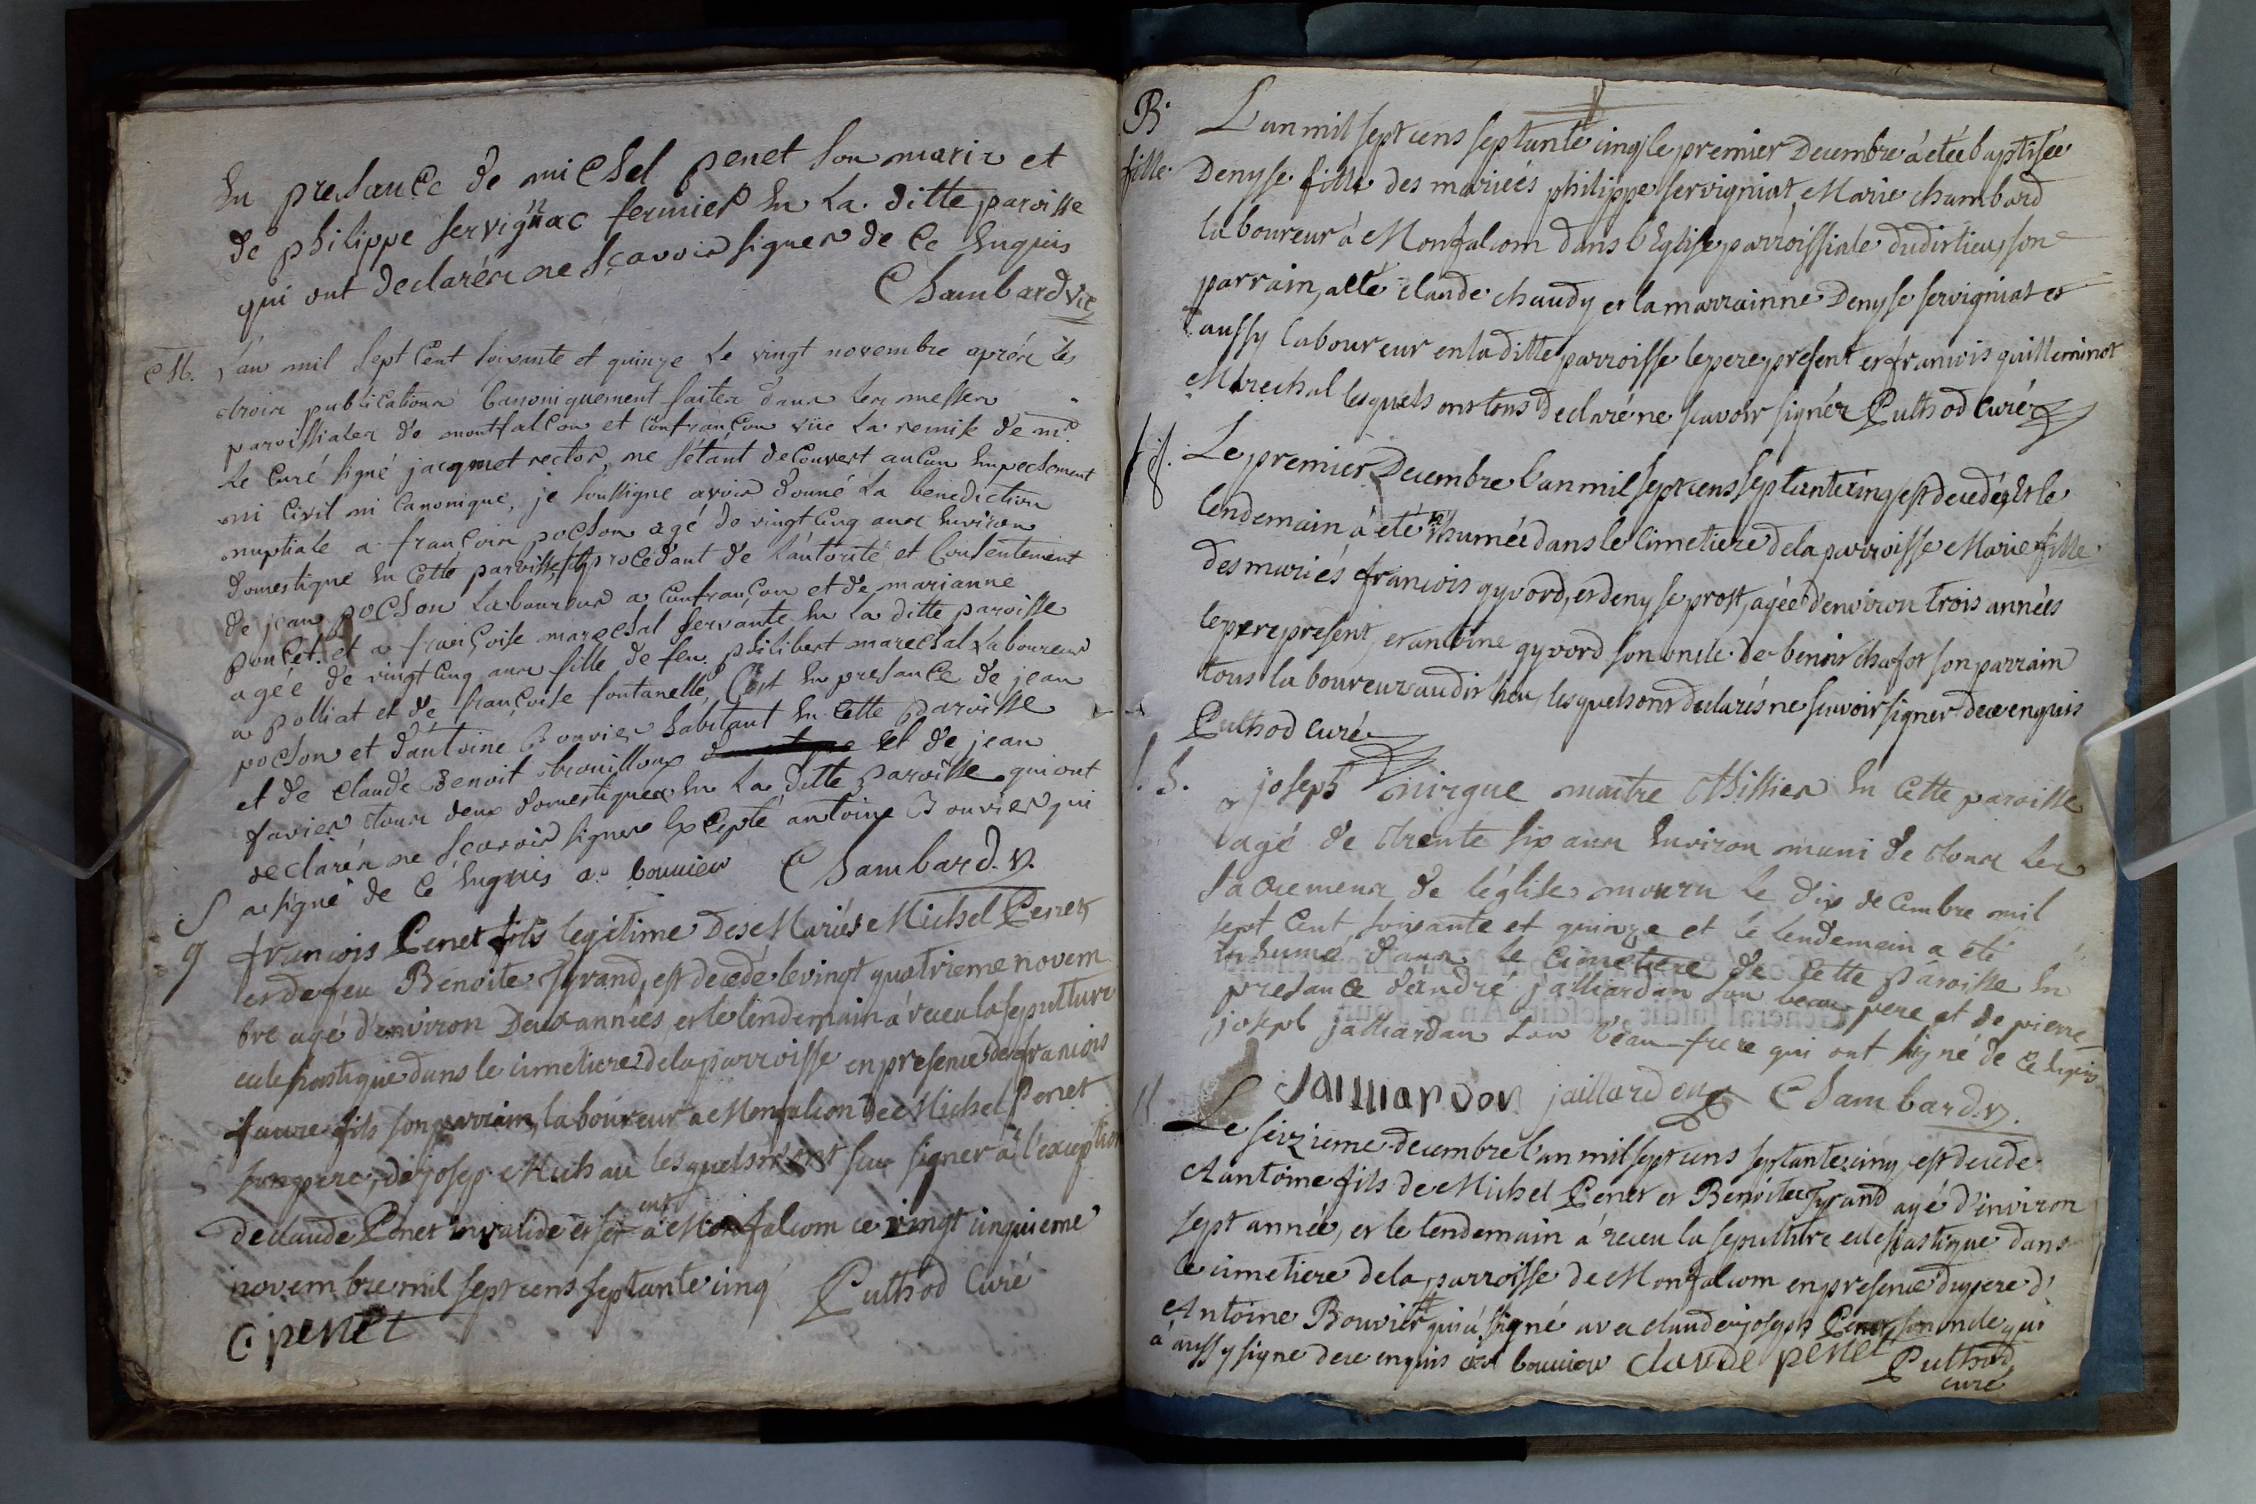 En presance de michel penet son marix et
de philippe servignac fermier En La ditte paroisse
qui ont declarér ne sçavoir signer de ce Enquis
Chambard vic
M. L'an mil sept Cent soixante et quinze Le vingt novembre aprér les
trois publications Canoniquement faiter dans Les messes
paroissialer de montfalcon et confrançon vüe La remise de mr.
Le Curé signé jacquet rector, ne s'étant decouvert aucun Empechement
ni Civil ni Canonique, je soussigne avoir donné La benediction
nuptiale a françois pochon agé de vingt cinq anx Environ
domestique En Cette paroisse, procedant de L'autorité et Consentement
de jean pochon Laboureur a confrançon et de marianne
poncet. et a françoise marechal servante En La ditte paroisse
agée de vingt Cinq anx fille de feu philibert marechal Laboureur
a polliat et de françoise fontanelle, C'est En presance de jean
pochon et d'antoine Bouvier habitant En Cette paroisse
et de claude Benoit trouilloux et de jean
favier tous deux domestiques En La ditte Paroisse qui ont
declarér ne sçavoir signer Excepté antoine Bouvier qui
a signé de Ce Enquis a. bouvier Chambard. v.
S
g françois Penet fils legitime Des Mariés Michel Penet
et de feu Benoite Tyrand, est decedé le vingt quatrieme novem
bre agé d'environ Deux années et le lendemain à receu la sepulture
eclesiastique dans le cimetiere de la parroisse en presence de francois
faure fils son parrain, laboureur a Monfalcon de Michel Penet
son pere, de josep Michau lesquels n'ont sçu signer à l'exception
de claude Penet invalide et a Monfalcom ce vingt cinquieme
novembre mil sept cens septante cinq Puthod Curé
C. penet
B. L'an mil sept cens septante cinq le premier Decembre à etée baptisée
fille. Denyse fille des mariées philippe servigniat Marie chambard
laboureur à Monfalcom dans l'Eglise parroissiale dudit lieu, son
parrain, a eté claude chaudy et la marrainne Denyse servigniat et
aussy laboureur en la ditte parroisse le pere present et francois guilleminot
Marechal lesquels ont tous declaré ne scavoir signér Puthod Curé
Le premier Decembre l'an mil sept cens septante cinq est decedéz Et le
lendemain à eté inhumée dans le Cimetiere de la parroisse Marie fille
des mariés francois gyvord, et denyse prost, agée d'environ trois années
le pere present, et antoine gyvord son oncle. de benoit chafot son parrain
tous laboureur audit lieu, lesquels ont declarés ne scavoir signer de ce enquis
Puthod curé
S. joseph mirque maitre Thissier En Cette paroisse
agé de trente six anx Environ muni de tous Les
sacremens de l'église mouru Le dix decembre mil
sept Cent soixante et quinze et Le Lendemain a été
Inhumé dans Le Cimetiere de Cette Paroisse En
presance d'andré jalliardon son beau-pere et de pierre
joseph jalliardan son beau-frere qui ont signé de ce Enquis
jailliardon jaillardon Chambard. v.
Le seizieme decembre l'an mil sept cens septante cinq est decede
Antoine fils de Michel Penet et Benoite Tyrand agé d'environ
sept année, et le lendemain à receu la sepulture eclesiastique dans
le cimetiere de la parroisse de Monfalcom en presence du pere d'
Antoine Bouvier qui à signé avec claude joseph Penet son oncle qui
a aussy signe de ce enquis a. bouvier claude penet Puthod
curé